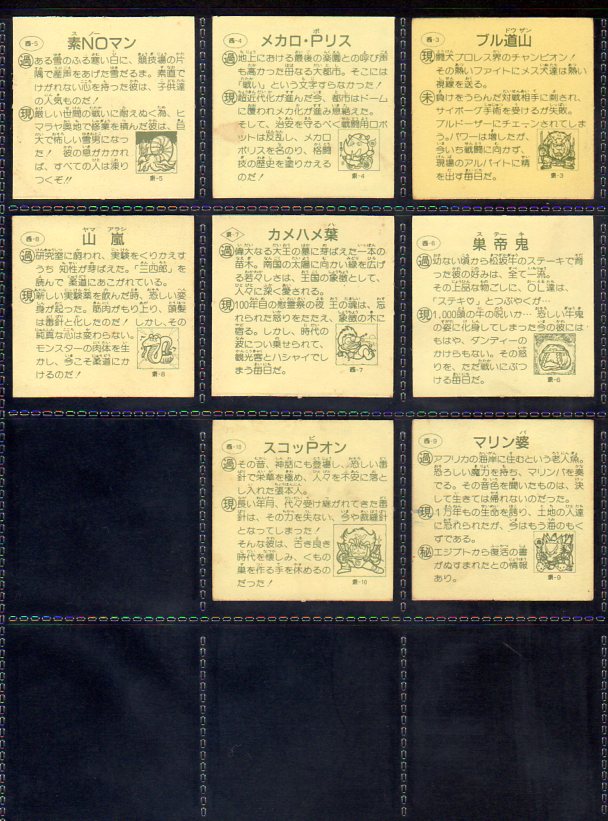 西-5
スノー
素NOマン
過 ある雪のふる寒い日に、競技場の片
隅で産声をあげた雪だるま。素直で
けがれない心を持った彼は、子供達
の人気ものだ!
現 厳しい世間の戦いに耐えぬく為、ヒ
マラヤ奥地で修業を積んだ彼は、巨
大で怖しい雪男になっ
た! 彼の息がかかれ
ば、すべての人は凍り
つくぞ!!
東-5
西-4
ポ
メカロ・Pリス
過 地上における最後の楽園との呼び声
も高かった母なる大都市。そこには
「戦い」という文字すらなかった!
現 超近代化が進んだ今、都市はドーム
に覆われメカ化が進み息絶えた。
そして、治安を守るべく戦闘用ロボ
ットは反乱し、メカロ
ポリスを名のり、格闘
技の歴史を塗りかえる
のだ!
東-4
西-3
ドウザン
ブル道山
現 闘犬プロレス界のチャンピオン!
その熱いファイトにメス犬達は熱い
視線を送る。
未 負けをうらんだ対戦相手に刺され、
サイボーグ手術を受けるが失敗。
ブルドーザーにチェーンされてしま
う。パワーは増したが、
今いち戦闘に向かず、
現場のアルバイトに精
を出す毎日だ。
東-3
西-8
ヤマ アラシ
山嵐
過 研究室に飼われ、実験をくりかえす
うち 知性が芽ばえた。「三四郎」を
読んで 柔道にあこがれている。
現 新しい実験薬を飲んだ時、恐しい変
身が起った。筋肉がもり上り、頭髪
は毒針と化したのだ! しかし、その
純真な心は変わらない。
モンスターの肉体を生
かし、今こそ柔道にか
けるのだ!
東-8
東-7
ハ
カメハメ葉
過 偉大なる大王の墓に芽ばえた一本の
苗木。南国の太陽に向かい緑を広げ
る若々しさは、王国の象徴として、
人々に深く愛される。
現 100年目の慰霊祭の夜 王の魂は、忘
れられた怒りをたたえ、象徴の木に
宿る。しかし、時代の
波につい乗せられて、
観光客とハシャイでし
まう毎日だ。
西-7
西-6
ステーキ
巣帝鬼
過 幼ない頃から松阪牛のステーキで育
った彼の好みは、全て一流。
その上品な物ごしに、ひめし達は、
「ステキ♡」とつぶやくが…
現 1,000頭の牛の呪いか… 恐しい牛鬼
の姿に化身してしまった今の彼には
もはや、ダンディーの
かけらもない。その怒
りを、ただ戦いにぶつ
ける毎日だ。
東-6
西-10
ピ
スコッPオン
過 その昔、神話にも登場し、恐しい毒
針で栄華を極め、人々を不安に落と
し入れた張本人。
現 長い年月、代々受け継がれてきた毒
針は、その力を失ない、今や裁縫針
となってしまった!
そんな彼は、古き良き
時代を懐しみ、くもの
巣を作る手を休めるの
だった!
東-10
西-9
バ
マリン婆
過 アフリカの海岸に住むという老人魚。
恐ろしい魔力を持ち、マリンバを奏
でる。その音色を聞いたものは、決
して生きては帰れないのだった。
現 1万年もの生命を誇り、土地の人達
に恐れられたが、今はもう海のもく
ずである。
秘 エジプトから復活の書
がぬすまれたとの情報
あり。
東-9